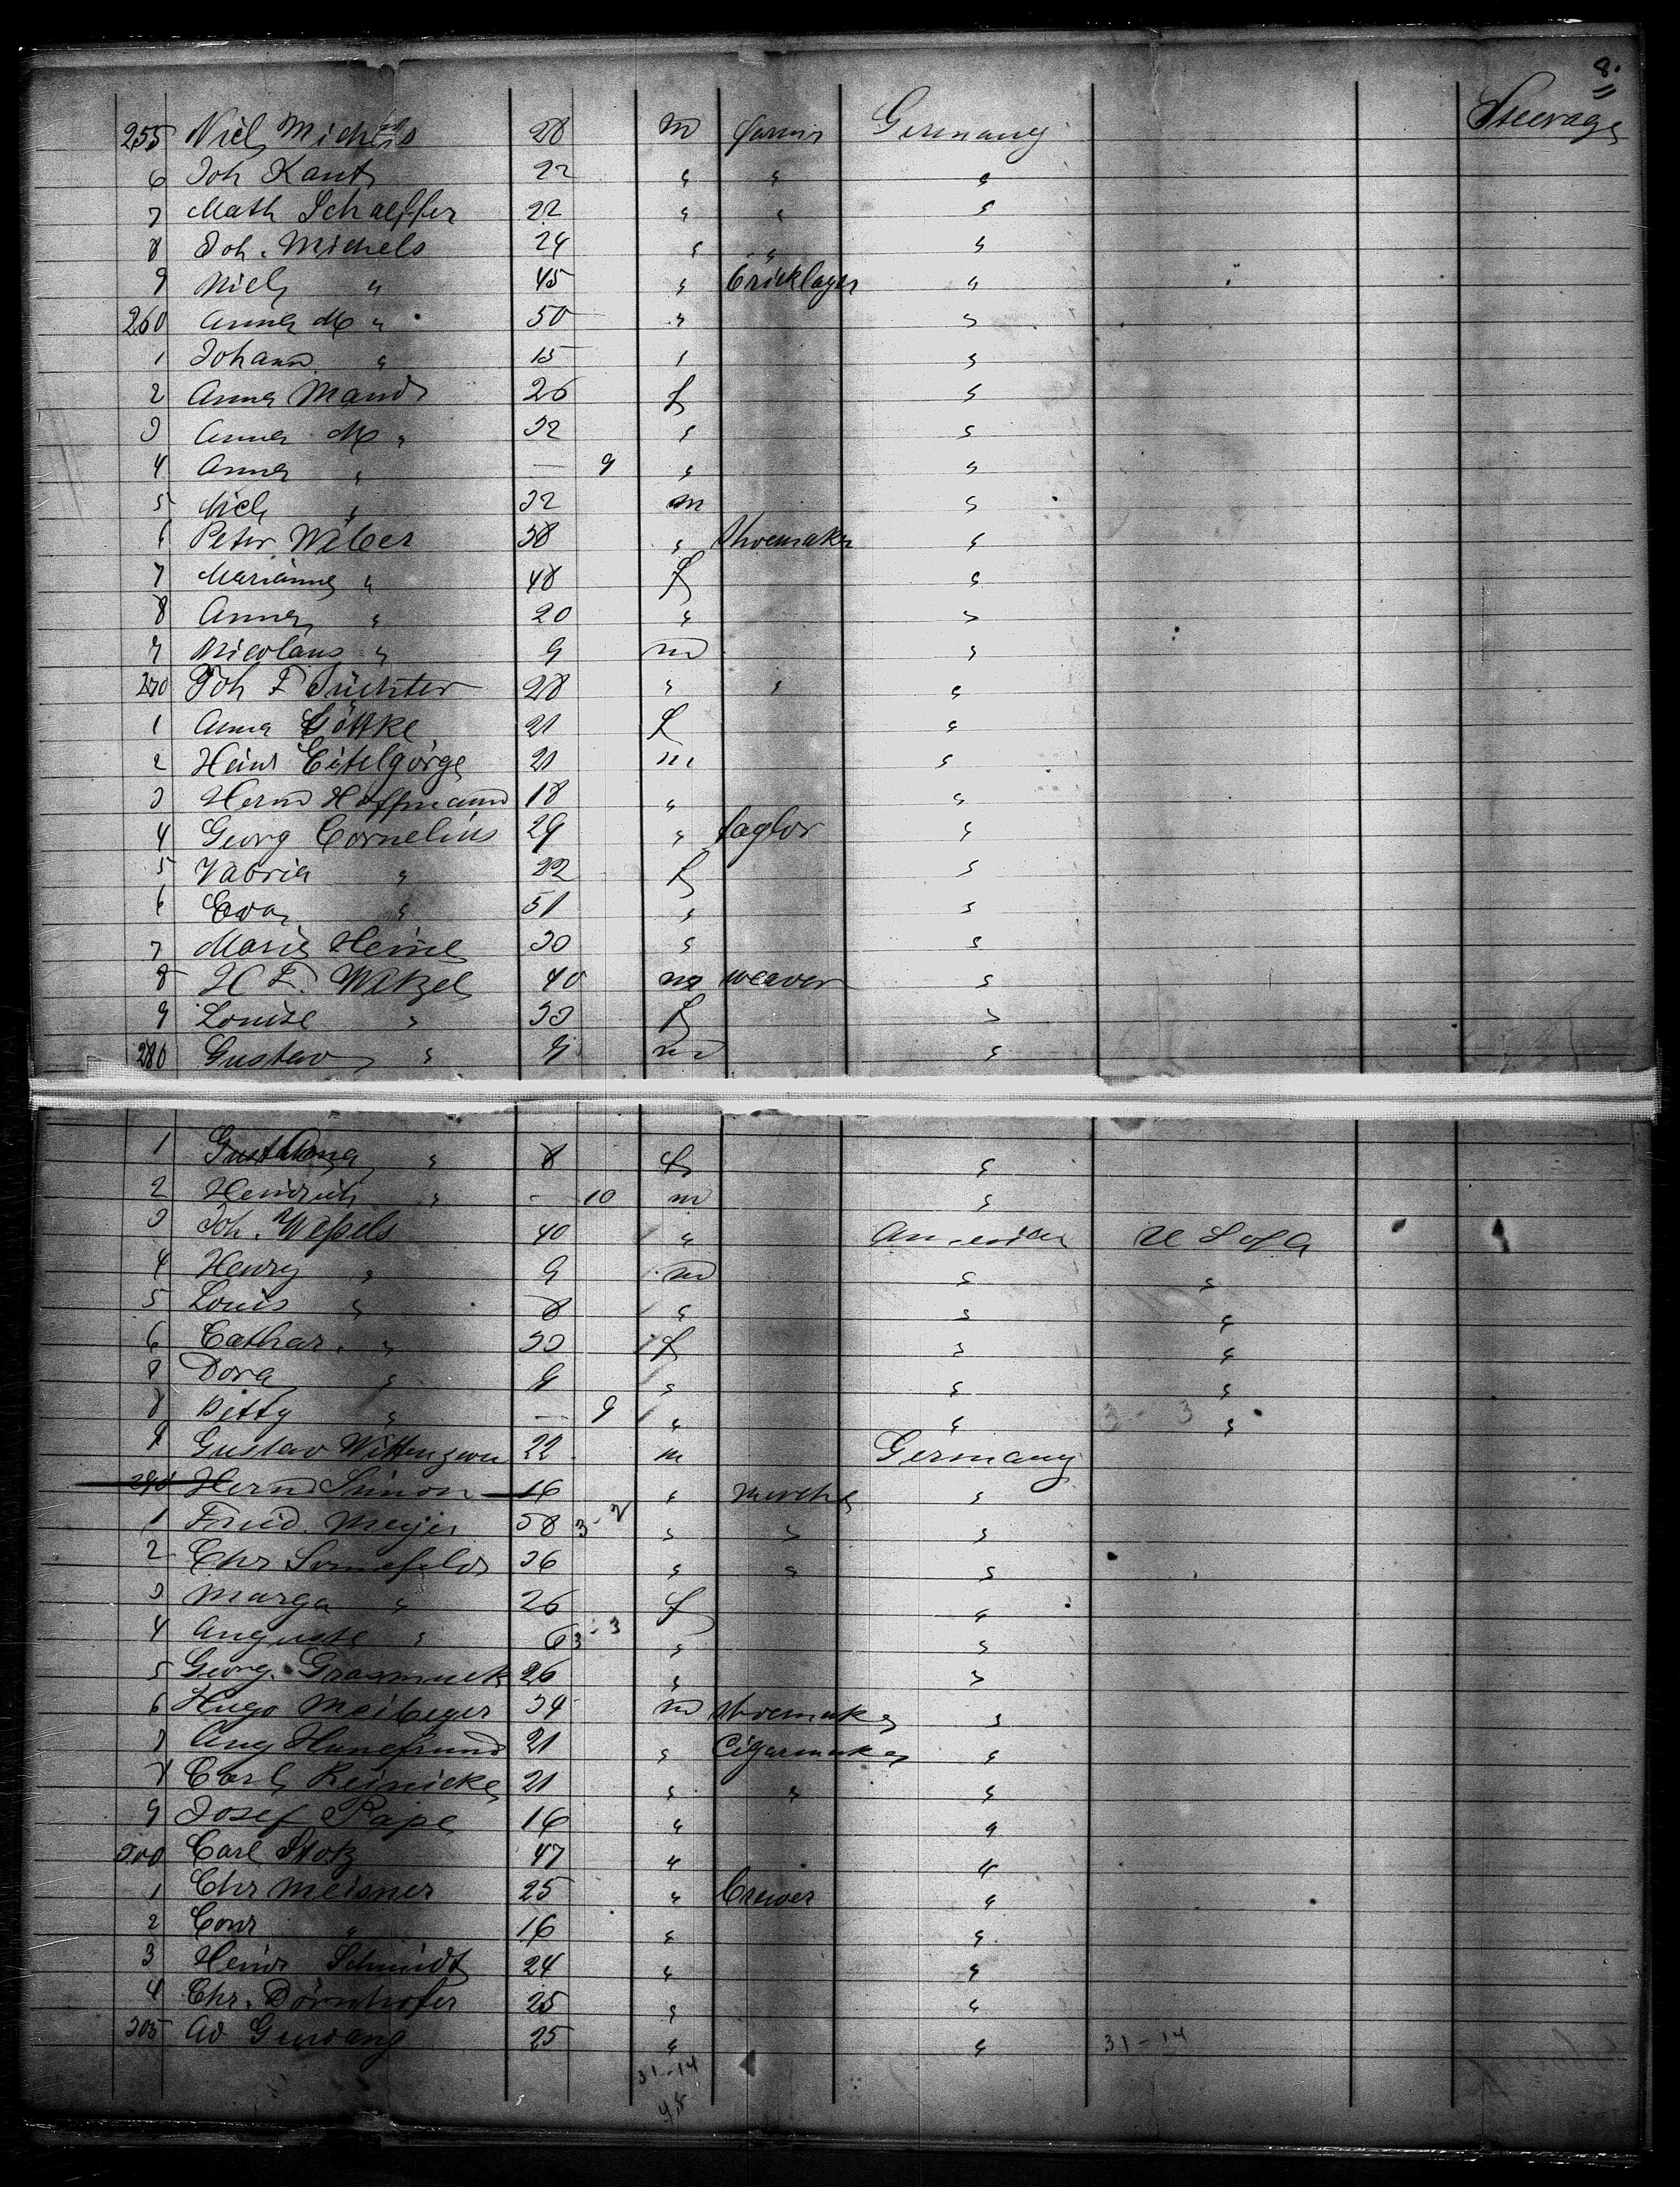 8.
255 Niel Michels 28 m farmer Germany Steerage
6 Joh Kant 22 " " "
7 Math Schaeffer 22 " " "
8 Joh. Michels 24 " " "
9 Niel " 45 " bricklayer "
260 Anna M " 50 " "
1 Johann " 15 " "
2 Anna Mand 26 f "
3 Anna M " 32 " "
4 Anna " — 9 " "
5 Niel " 32 m "
6 Peter Weber 58 " Shoemaker "
7 Marianna " 48 f "
8 Anna " 20 " "
9 Nicolaus " 9 m "
270 Joh F 28 " " "
1 Anna Göttke 21 f "
2 Heinr Eitelgörge 21 m "
3 Herm Hoffmann 18 " "
4 Georg Cornelius 29 " taylor "
5 " 22 f "
6 Eva " 51 " "
7 Marie Heine 30 " "
8 H F. Wetzel 40 m weaver "
9 Louise " 33 f "
280 Gustav " 9 m "
1 " 8 f "
2 Heinrich " - 10 m "
3 Joh. Weßels 40 " America U S of A
4 Henry " 9 m " "
5 Louis " 8 " " "
6 Cathar. " 33 f " "
8 Dora " 9 " " "
8 " — 9 " " 3 - 3 "
9 Gustav 22 m Germany
290 Herm Simon 16 " "
1 Fried. Meyer 58 3 - 2 " " "
2 Chr Sonnefeld 36 " " "
3 Marga " 26 f "
4 Auguste " 6 3 - 3 " "
5 Georg. Grasmuck 26 " "
6 Hugo Meibeyer 34 m Shoemaker "
7 Aug 21 " Cigarmaker "
8 Carl Reinicke 21 " " "
9 Josef Pape 16 " "
300 Carl Stotz 47 " "
1 Chr Meisner 25 " brewer "
2 Conr " 16 " "
3 Heinr Schmidt 24 " "
4 Chr. Dörnhofer 25 " "
305 Ad 25 " " 31-14
31-14
45